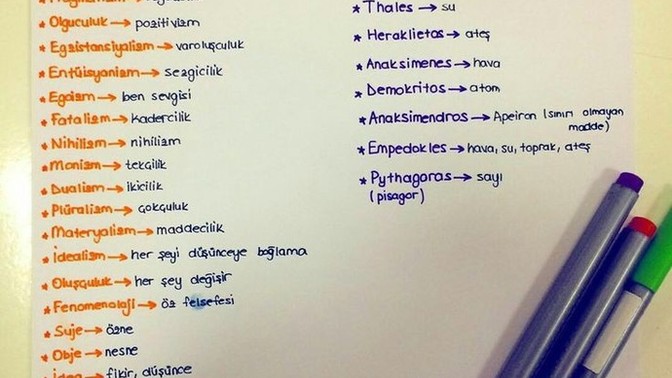 * Olguculuk → pozitivizm
* Egzistansiyalizm → varoluşçuluk
* Entüisyonizm → sezgicilik
* Egoizm → ben sevgisi
* Fatalizm → kadercilik
* Nihilizm → nihilizm
* Monizm → tekçilik
* Dualizm → ikicilik
* Plüralizm → çokçuluk
* Materyalizm → maddecilik
* İdealizm → her şeyi düşünceye bağlama
* Oluşçuluk → her şey değişir
* Fenomenoloji → öz felsefesi
* Suje → özne
* Obje → nesne
* İdea → fikir, düşünce
* Thales → su
* Heraklietos → ateş
* Anaksimenes → hava
* Demokritos → atom
* Anaksimendros → Apeiron (sınırı olmayan
madde)
* Empedokles → hava, su, toprak, ateş
* Pythagoras → sayı
(pisagor)